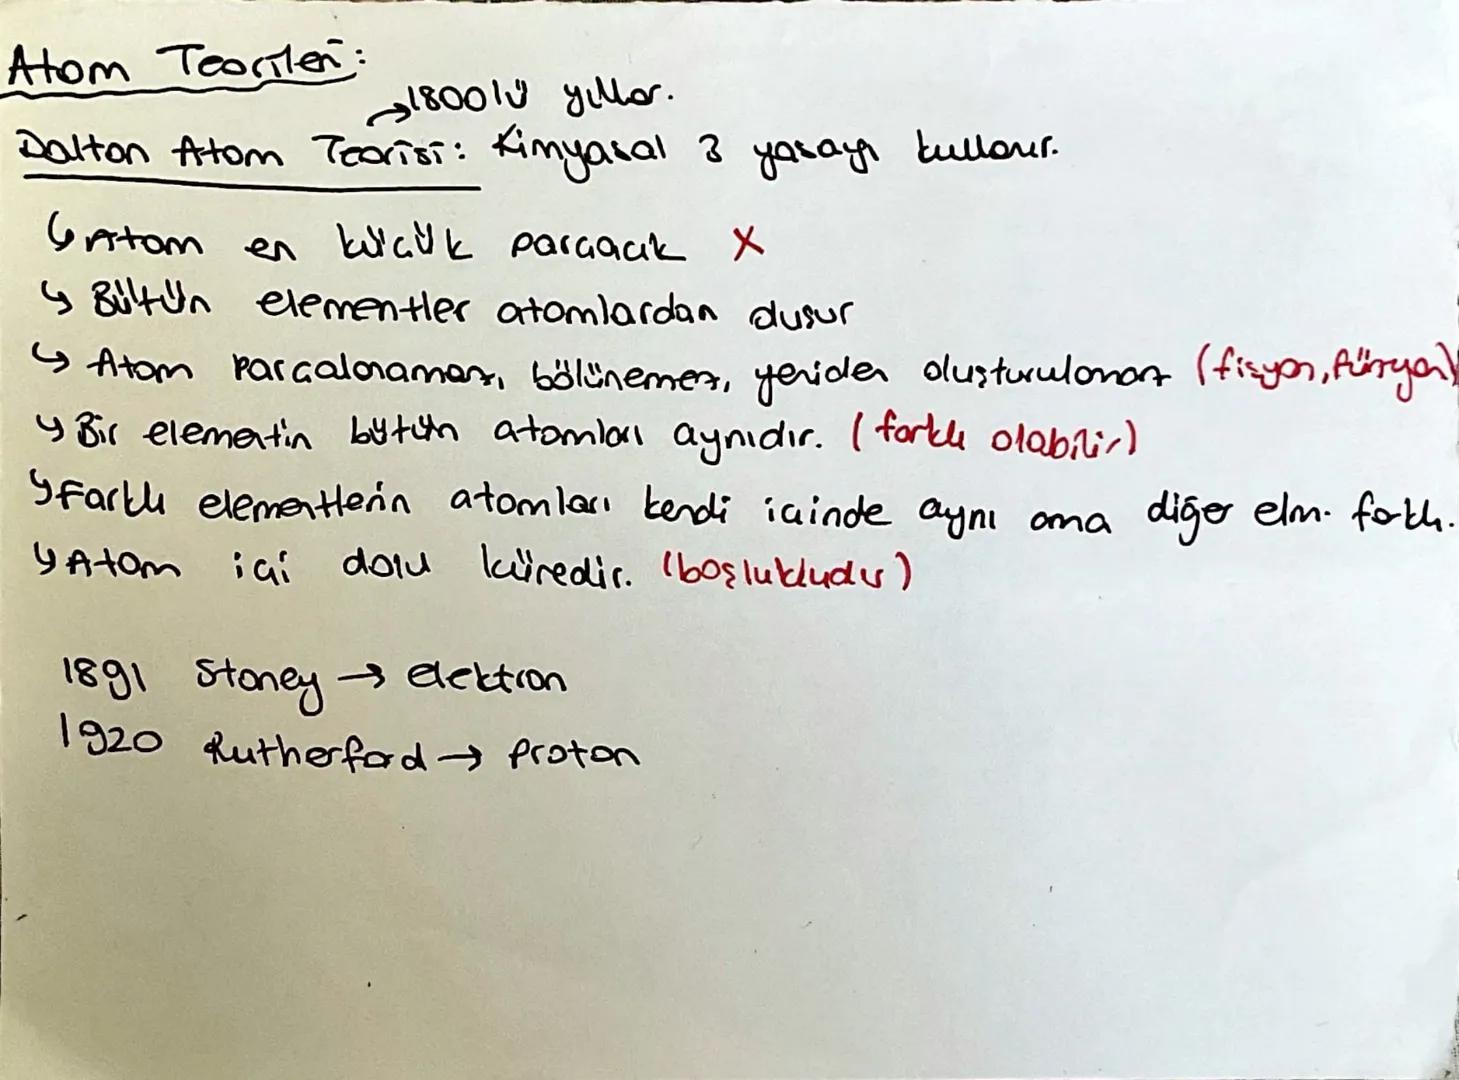 Atom Teorileri:
→1800lü yıllar.
Dalton Atom Teorisi: Kimyasal 3 yasayı kullanır.
↳ Atom en küçük parçacık X
↳ Bütün elementler atomlardan oluşur
↳ Atom parçalanamaz, bölünemez, yeniden oluşturulamaz (fisyon, füzyon)
↳ Bir elementin bütün atomları aynıdır. (farklı olabilir)
↳ Farklı elementlerin atomları kendi içinde aynı ama diğer elm. farklı.
↳ Atom içi dolu küredir. (boşlukludur)
1891 Stoney → elektron
1920 Rutherford → proton